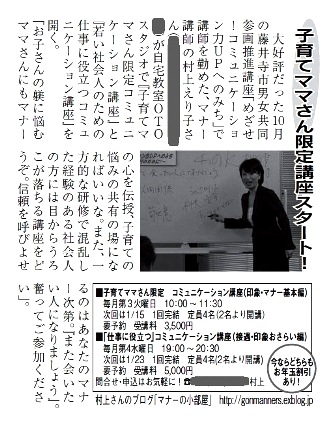 子育てママさん限定講座スタート!
大好評だった10月
の藤井寺市男女共同
参画推進講座『めざせ
!コミュニケーショ
ン力UPへのみち』で
講師を勤めた、マナー
講師の村上えり子さ
ん
が自宅教室OTO
スタジオで『子育てマ
マさん限定コミュニ
ケーション講座』と
『若い社会人のための
仕事に役立つコミュ
ニケーション講座』を
開く。
「お子さんの躾に悩む
ママさんにもマナー
の心を伝授。子育ての
悩みの共有の場にな
ればいいな。また、一
方的な研修で混乱し
た経験のある社会人
の方には目からうろ
こが落ちる講座をど
うぞ。信頼を呼びよせ
るのはあなたのマナ
ー次第。『また会いた
い人になりましょう』。
奮ってご参加くださ
い」。
■子育てママさん限定 コミュニケーション講座(印象・マナー基本編)
毎月第3火曜日 10:00〜11:30
次回は1/15 1回完結 定員4名(2名より開講)
要予約 受講料 3,500円
■「仕事に役立つ」コミュニケーション講座(接遇・印象おさらい編)
毎月第4水曜日 19:00〜20:30
次回は1/23 1回完結 定員4名(2名より開講)
要予約 受講料 5,000円
問合せ・申込はお気軽に!☎ 村上
今ならどちらも
お年玉割引
あり!
村上さんのブログ「マナーの小部屋」 http://gonmanners.exblog.jp